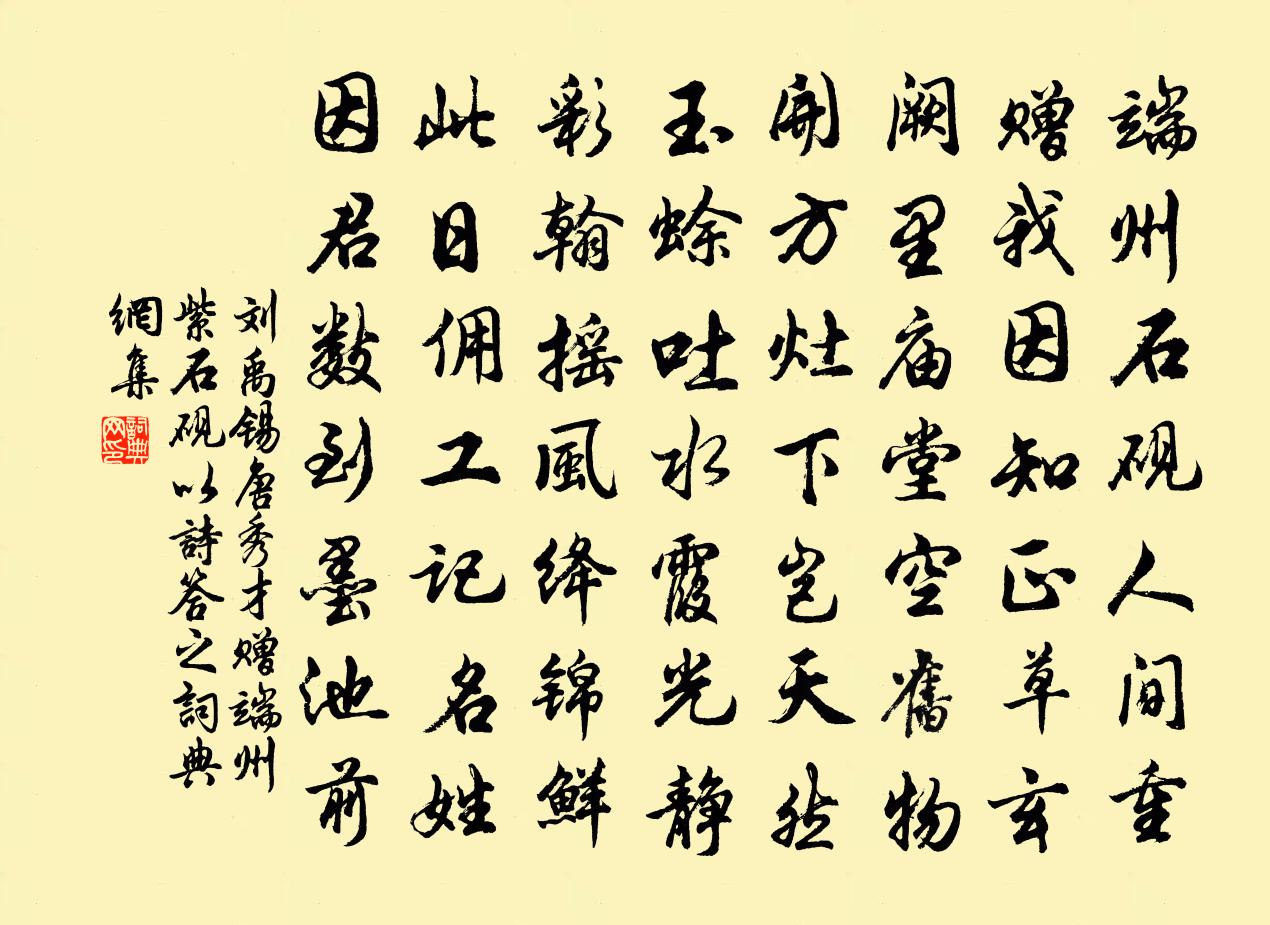 端州石砚人间重
赠我因知正草玄
阙里庙堂空舊物
開方灶下岂天然
玉蜍吐水霞光静
彩翰摇風绛锦鲜
此日佣工记名姓
因君数到墨池前
刘禹锡唐秀才赠端州
紫石砚以詩答之詞典
網集
詞典
网印